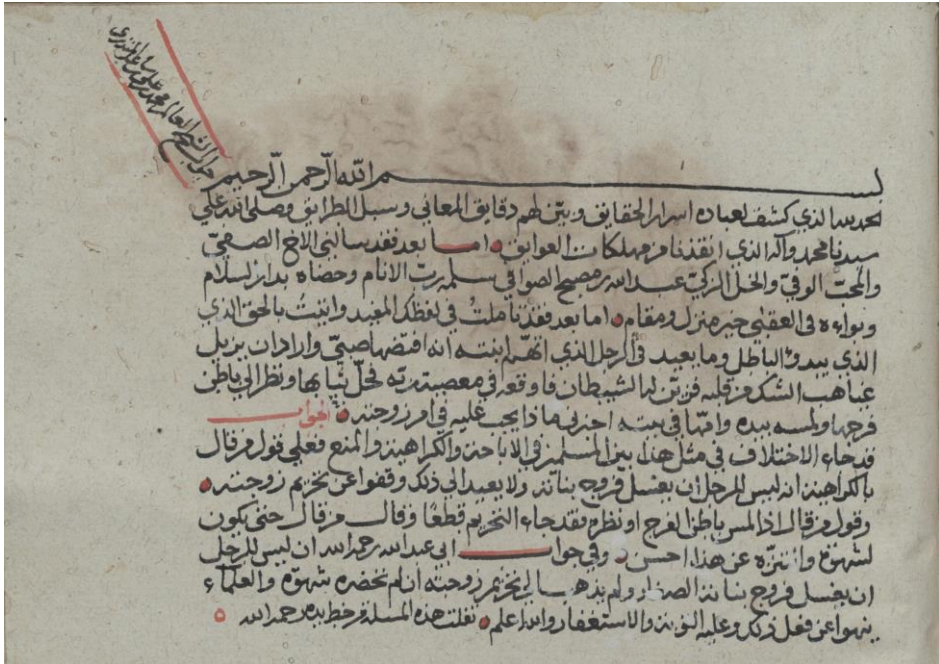 جواب الشيخ العالم محمد بن علي
بسم الله الرحمن الرحيم
الحمد لله الذي كشف لعباده اسرار الحقايق وبيّن لهم دقايق المعاني وسبل الطرايق وصلى الله على
سيدنا محمد وآله الذي انقذنا من مهلكات العوايق اما بعد فقد سالني الاخ الصفيّ
والمحبّ الوفيّ والخل الزكيّ عبد الله بن مصبح الصوافي سلمه ربّ الانام وحضاه بدار السلام
وبواءه في العقبى خير منزل ومقام اما بعد فقد تاملتُ في لفظك المفيد واتيتُ بالحق الذي
الذي يبدئ الباطل وما يعيد في الرجل الذي اتّهم ابنته انه افتضها صبيّ واراد ان يزيل
غياهب الشك من قلبه فزيّن له الشيطان فاوقعه في معصية ربّه فحلّ ثيابها ونظر الى باطن
فرجها ولمسه بيده وامّها في بيته اخبرني ماذا يجب عليه في امر زوجته الجواب
قد جاء الاختلاف في مثل هذا بين المسلمين في الاباحة والكراهية والمنع فعلى قول من قال
بالكراهية انه ليس للرجل ان يغسل فروج بناته ولا يعيد الى ذلك وقفوا عن تحريم زوجته
وقول من قال اذا لمس باطن الفرج او نظره فقد جاء التحريم قطعًا وقال من قال حتى يكون
لشهوة والتنزّه عن هذا احسن وفي جواب ابي عبد الله رحمه الله ان ليس للرجل
ان يغسل فروج بناته الصغار ولم يذهب الى تحريم زوجته ان لم تحضره شهوة والعلماء
ينهوا عن فعل ذلك وعليه التوبة والاستغفار والله اعلم نقلت هذه المسلة من خط يده رحمه الله